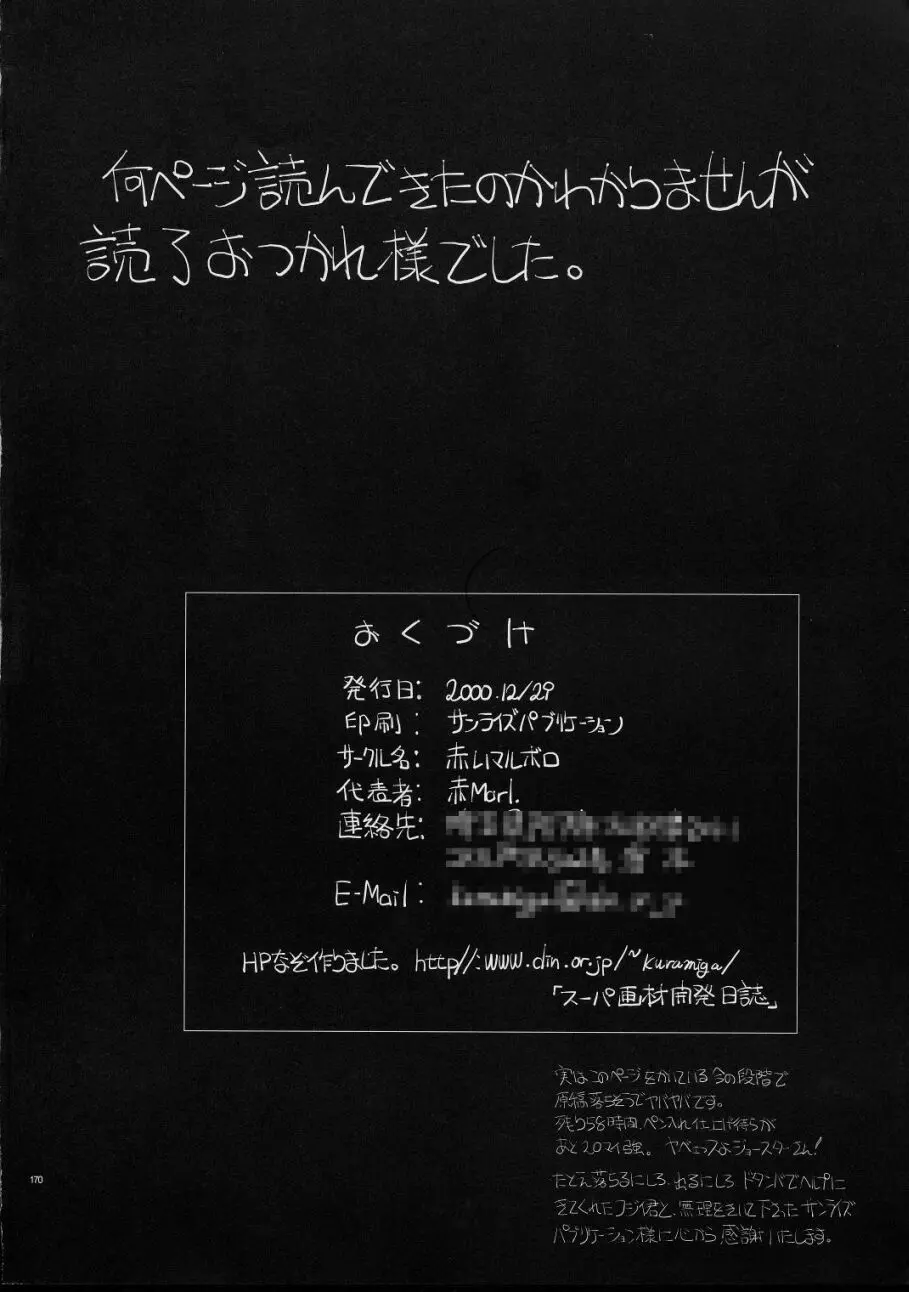 何ページ読んできたのかわかりませんが
読了おつかれ様でした。
おくづけ
発行日: 2000.12/29
印刷: サンライズパブリケーション
サークル名: 赤いマルボロ
代表者: 赤Marl.
連絡先:
E-Mail:
HPなぞ作りました。http//:www.din.or.jp/~kuramiga/
「スーパ画材開発日誌」
実はこのページをかいている今の段階で
原稿落ちそうでヤバヤバです。
残り58時間、ペン入れ仕上げ待ちが
あと20マイ強。ヤベェっスよジョースターさん!
たとえ落ちるにしろ、出るにしろ ドタンバでヘルプに
きてくれたコジィ君と、無理をきいて下さった サンライズ
パブリケーション様に心から感謝いたします。
170